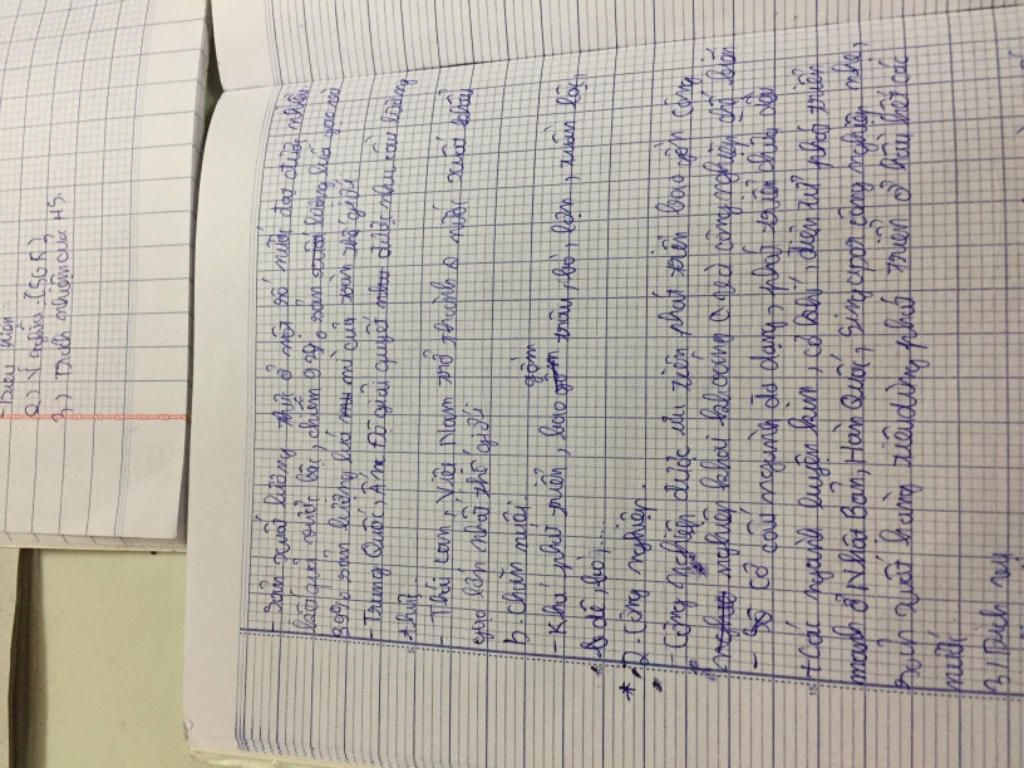 - Biểu hiện
2) Ý nghĩa (SGK)
3) Trách nhiệm của HS.
- Sản xuất lương thực ở một số nước đạt được nhiều
kết quả vượt bậc, chiếm 93% sản lượng lúa gạo và
39% sản lượng lúa mì của toàn thế giới
- Trung Quốc, Ấn Độ giải quyết được nhu cầu lương
thực.
- Thái Lan, Việt Nam trở thành nước xuất khẩu
gạo lớn nhất thế giới
b. Chăn nuôi.
- Khá phát triển, bao gồm trâu, bò, lợn, tuần lộc,
dê, bò,...
* 2. Công nghiệp.
- Công nghiệp được ưu tiên phát triển bao gồm công
nghiệp khai khoáng và công nghiệp chế biến
- Có cơ cấu ngành đa dạng, phát triển chưa đều
+ Các ngành luyện kim, cơ khí, điện tử phát triển
mạnh ở Nhật Bản, Hàn Quốc, Singapo công nghiệp nhẹ,
Sản xuất hàng tiêu dùng phát triển ở hầu hết các
nước.
3. Dịch vụ